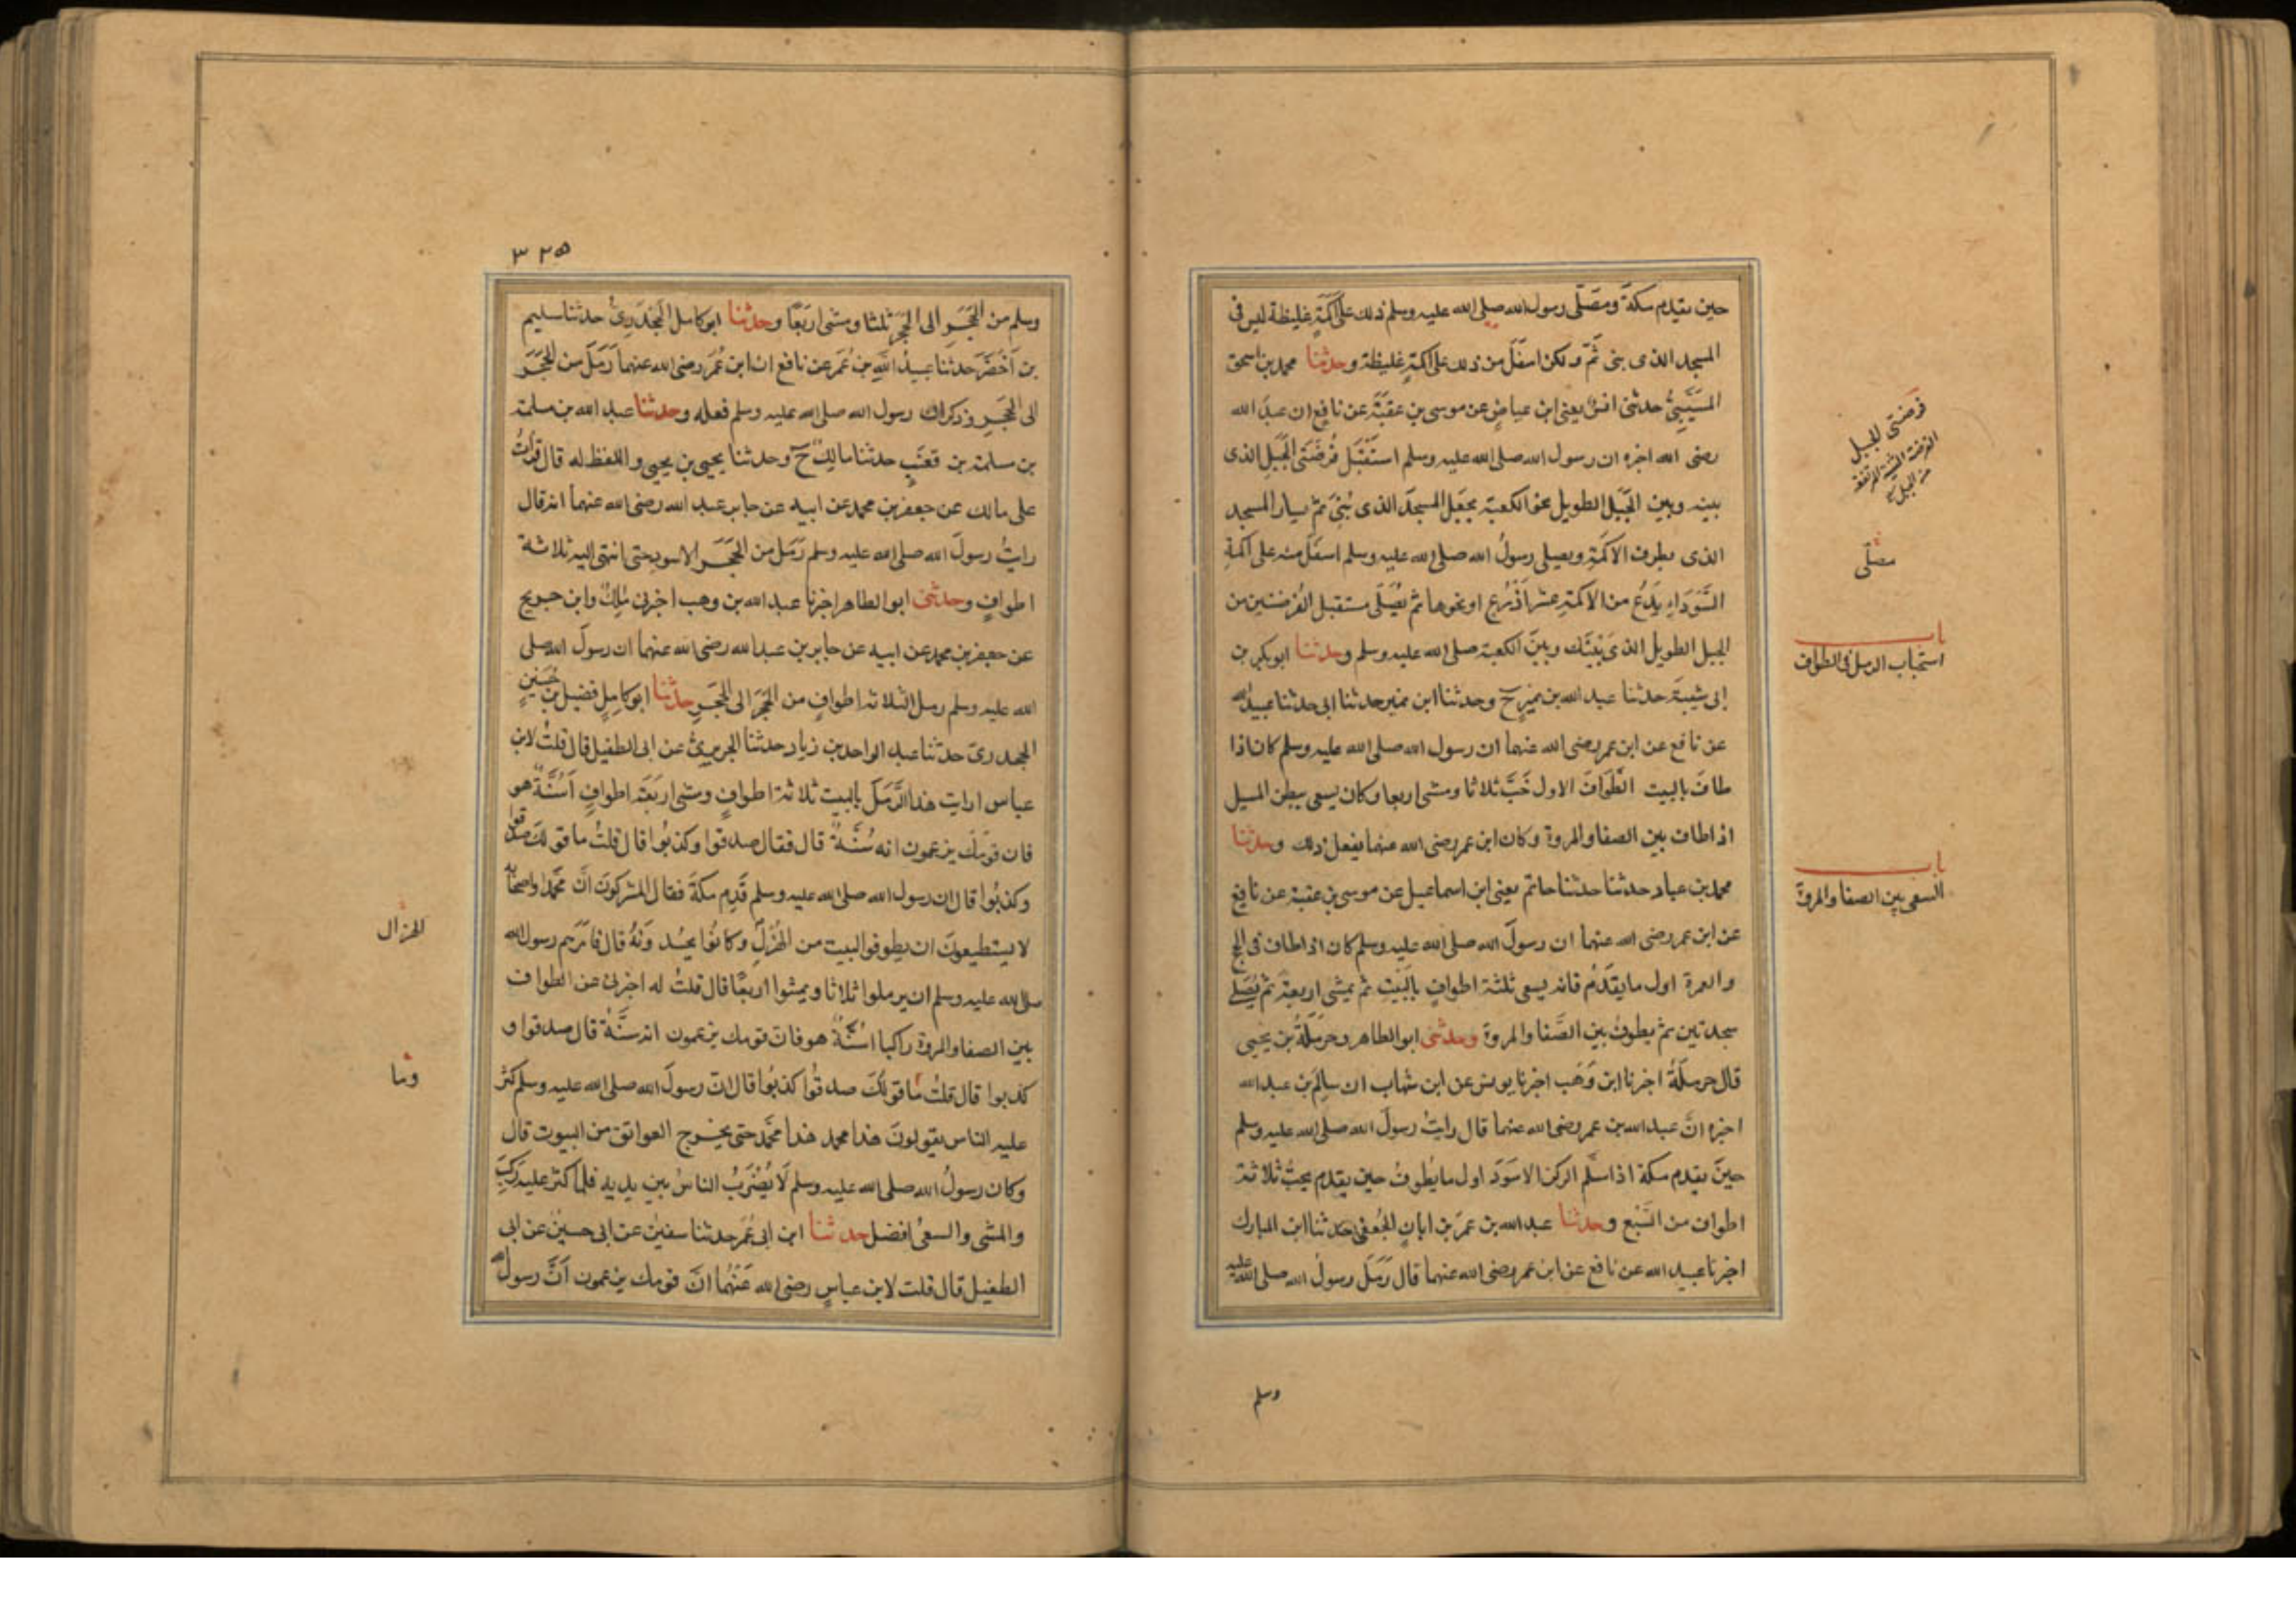 حين يقدم مكة ومصلّى رسول الله صلى الله عليه وسلم ذلك على اكمةٍ غليظة ليس فى
المسجد الذى بنى ثَمّ ولكن اسفَلَ من ذلك على اكمةٍ غليظة وحدثنا محمد بن اسحق
المُسَيَّبِىُّ حدثنى انسٌ يعنى ابن عياضٍ عن موسى بن عقبَةَ عن نافعٍ ان عبدَ الله
رضى الله اخبره ان رسول الله صلى الله عليه وسلم استَقْبَلَ فُرضَتَىِ الجَبَلِ الذى
بينه وبين الجَبَلِ الطويل نحو الكعبة يجعَل المسجدَ الذى بُنِىَ ثمّ يسار المسجد
الذى بطرف الاكَمَةِ ويصلى رسولُ الله صلى الله عليه وسلم اسفَلَ منه على اكمةِ
السَّوْدَاءِ يَدَعُ من الاكمَةِ عشرَ اَذْرُعٍ او نحوها ثم يُصَلّى مستقبل الفُرضتين من
الجبل الطويل الذى بَيْنَك وبينَ الكعبة صلى الله عليه وسلم وحدثنا ابو بكر بن
ابى شيبَةَ حدثنا عبد الله بن نميرٍ ح وحدثنا ابن نمير حدثنا ابى حدثنا عبيدُ الله
عن نافع عن ابن عمر رضى الله عنهما ان رسول الله صلى الله عليه وسلم كان اذا
طافَ بالبيت الطَّوَافَ الاول خَبَّ ثلاثا ومشى اربعا وكان يسعى ببطن المسيل
اذا طاف بين الصفا والمروة وكان ابن عمر رضى الله عنهما يفعل ذلك وحدثنا
محمد بن عباد حدثنا حدثنا حاتم يعنى ابن اسماعيل عن موسى بن عقبة عن نافعٍ
عن ابن عمر رضى الله عنهما ان رسولَ الله صلى الله عليه وسلم كان اذا طاف فى الحج
والعمرة اول ما يقدَمُ فانه يسعى ثلثة اطوافٍ بالبَيْتِ ثم يمشى اربعة ثم يُصَلى
سجدتين ثم يطوفُ بين الصَّفا والمروة وحدثنى ابو الطاهر وحرملَةُ بن يحيى
قال حرملَةُ اخبرنا ابن وَهَب اخبرنا يونس عن ابن شهاب ان سالِمَ بن عبد الله
اخبره انَّ عبد الله بن عمر رضى الله عنهما قال رايتُ رسولَ الله صلى الله عليه وسلم
حينَ يقدم مكة اذا استلم الركن الاسوَدَ اول ما يُطوفُ حين يقدم يخبُّ ثلاثة
اطواف من السَّبْعِ وحدثنا عبد الله بن عمَرَ بن ابانٍ الجُعفى حدثنا ابن المبارك
اخبرنا عبيد الله عن نافع عن ابن عمر رضى الله عنهما قال رَمَلَ رسولُ الله صلى الله عليه
فرضتى الجبل
الفرضة الثنية المرتفعة
من الجبل
مصلّى
باب
استحباب الرمل فى الطواف
باب
السعى بين الصفا والمروة
وسلم
٣٢٥
وسلم من الحَجَر الى الحَجَرِ ثلثا ومشى اربَعًا وحدثنا ابو كامل الجَحْدَرِىُّ حدثنا سليم
بن اَخْضَرَ حدثنا عبيدُ اللهِ بن عُمَرَ عن نافع ان ابن عُمَرَ رضى الله عنهما رَمَلَ من الحَجَرَ
الى الحَجَرِ وذكر ان رسول الله صلى الله عليه وسلم فعله وحدثنا عبد الله بن مسلمة
بن مسلمة بن قعنَبٍ حدثنا مالِكٌ ح وحدثنا يحيى بن يحيى واللفظ له قال قراتُ
على مالك عن جعفر بن محمد عن ابيه عن جابر عبد الله رضى الله عنهما انه قال
رايتُ رسولَ الله صلى الله عليه وسلم رَمَل من الحَجَر الاسود حتى انتهى اليه ثلاثة
اطوافٍ وحدثنى ابو الطاهر اخبرنا عبد الله بن وهب اخبرنى مٰلِكٌ وابن جريج
عن جعفر بن محمد عن ابيه عن جابر بن عبد الله رضى الله عنهما ان رسولَ الله صلى
الله عليه وسلم رمل الثلاثة اطوافٍ من الحَجَرَ الى الحَجَرِ حدثنا ابو كامِلٍ فضيل بن حُسَيْنٍ
الجحدرىّ حدثنا عبد الواحد بن زياد حدثنا الجريرىُّ عن ابى الطفيل قال قلتُ لابن
عباس ارايت هذا الرَّمَلَ بالبيت ثلاثة اطوافٍ ومشى اربَعَة اطوافٍ اَسُنَّةٌ هو
فان قومَك يزعمون انه سُنَّةٌ قال فقال صدقوا وكذبُوا قال قلتُ ما قولك صدقوا
وكذبُوا قال ان رسول الله صلى الله عليه وسلم قَدِم مكةَ فقال المشركونَ انَّ محمدًا واصحابه
لا يستطيعونَ ان يطوفوا البيت من الهُزْلِ وكانُوا يحسُدونَهُ قال فامَرَهم رسول الله
صلى الله عليه وسلم ان يرملوا ثلاثا ويمشوا اربعًا قال قلتُ له اخبرنى عن الطواف
بين الصفا والمروة راكبا اسُنَّةٌ هو فان قومك يزعمون انه سنَّةٌ قال صدقوا و
كذبوا قال قلتُ ما قولُكَ صدقُوا كذبُوا قال انّ رسولَ الله صلى الله عليه وسلم كثُر
عليه الناس يقولونَ هذا محمد هذا محمَّد حتى يخرج العواتق من البيوت قال
وكان رسولُ الله صلى الله عليه وسلم لَا يُضْرَبُ الناسُ بين يديه فلما كثُر عليه رَكِبَ
والمشى والسعىُ افضل حدثنا ابن ابى عُمَرَ حدثنا سفين عن ابى حسين عن ابى
الطفيل قال قلت لابن عباسٍ رضى الله عَنْهُما انَّ قومك يزعمون اَنَّ رسول الله
الهزال
وما